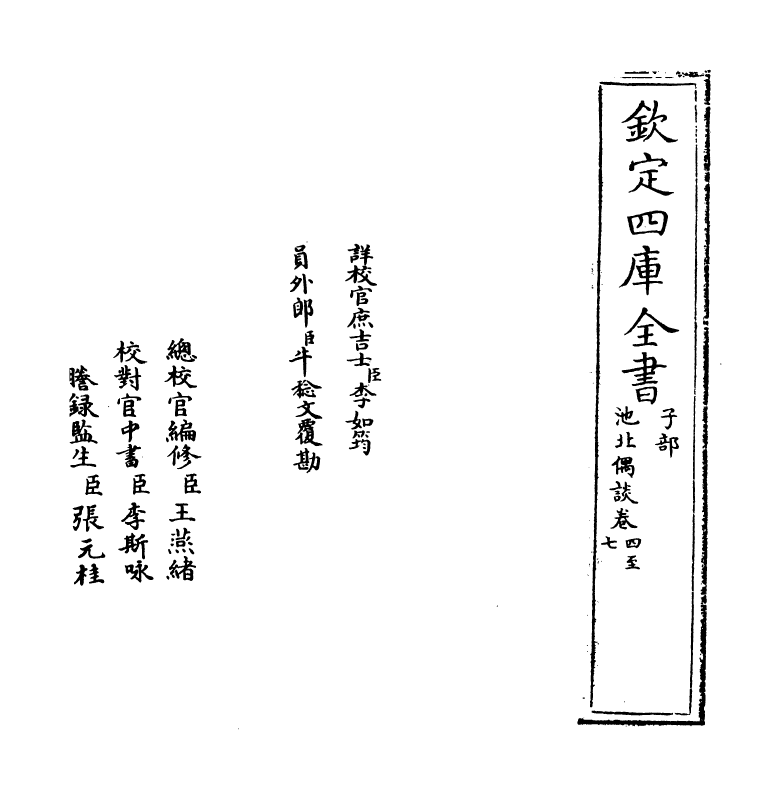 欽定四庫全書
子部
池北偶談卷四至七
詳校官庶吉士臣李如筠
員外郎臣牛稔文覆勘
總校官編修臣王燕緒
校對官中書臣李斯咏
謄録監生臣張元桂